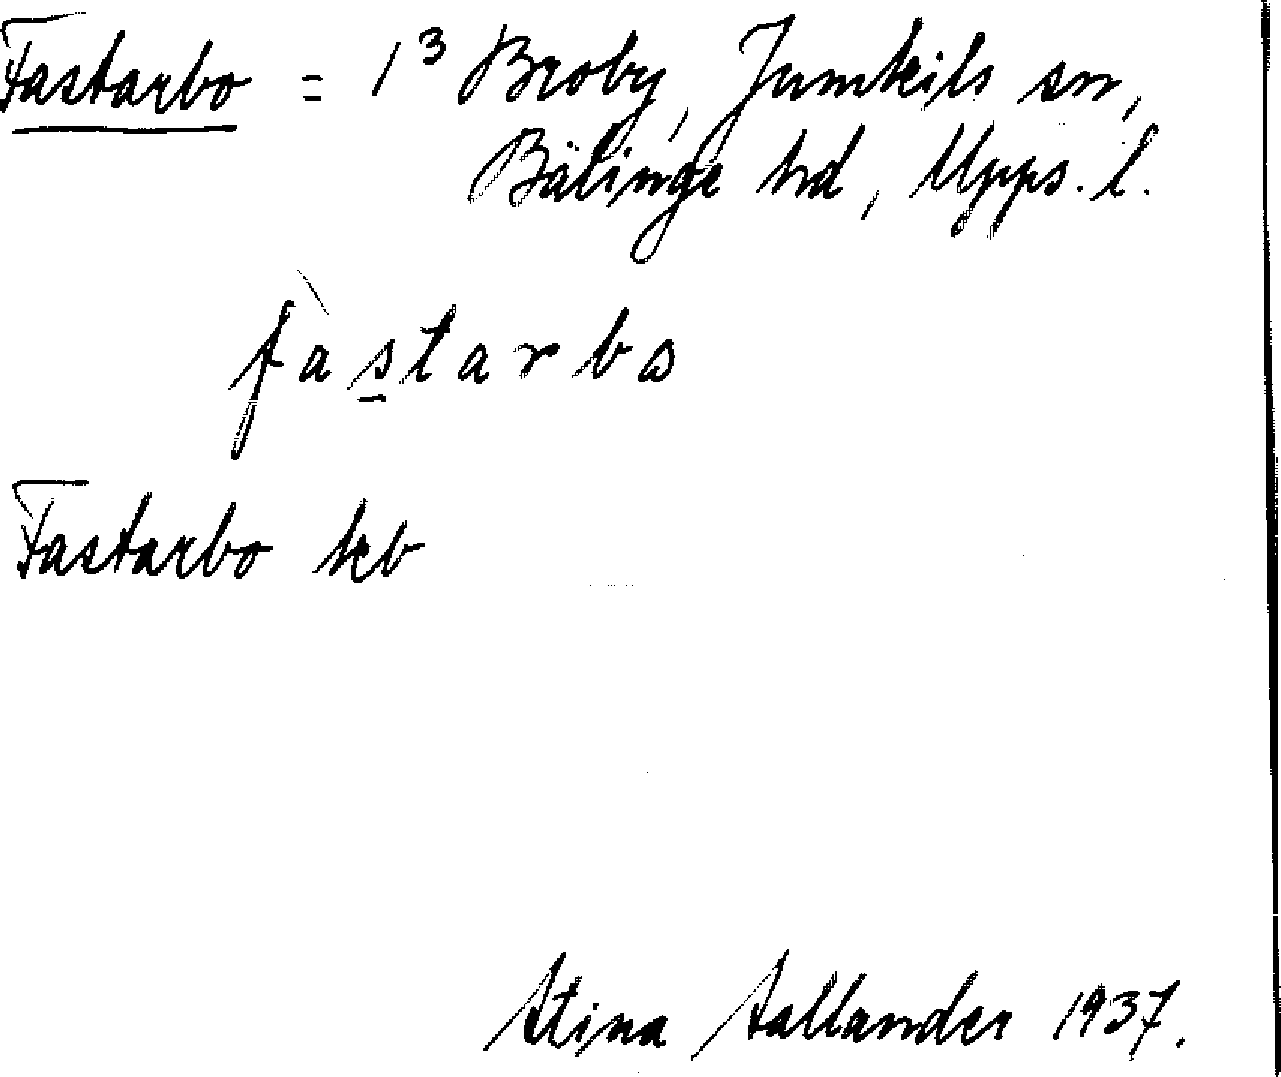 Fastarbo = 1³ Broby, Jumkils sn,
Bälinge hd, Upps. l.
fàstarbo
Fastarbo keb
Stina Hallander 1937.